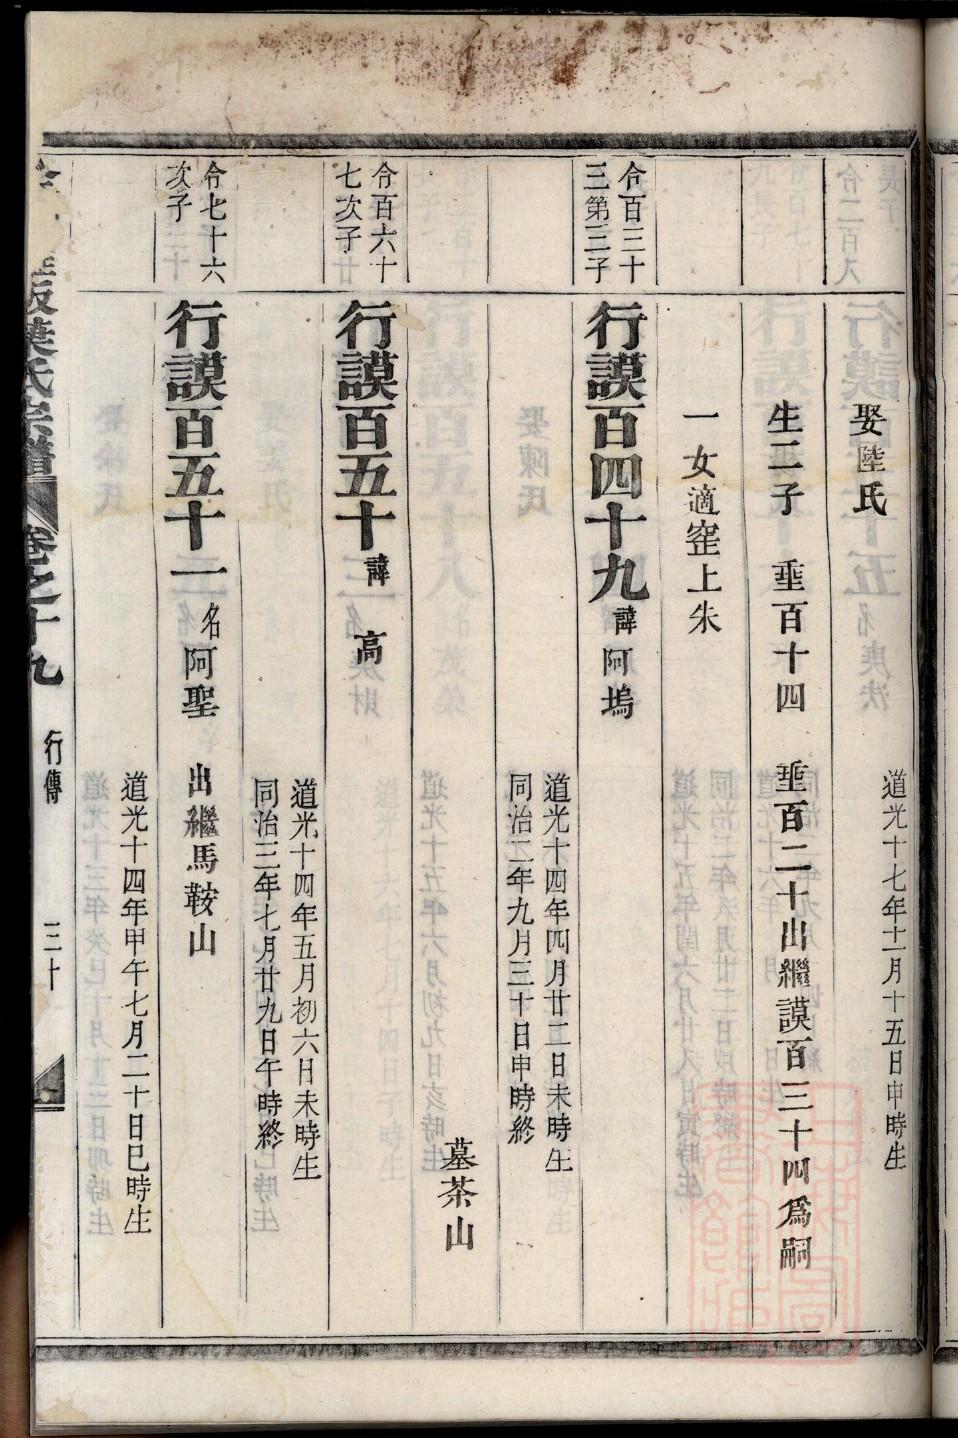 娶陸氏
道光十七年十一月十五日申時生
生二子 垂百十四 垂百二十出繼謨百三十四爲嗣
一女適窑上朱
令百三十三第三子
行謨百四十九 諱阿塢
道光十四年四月廿二日未時生
同治二年九月三十日申時終
墓茶山
令百六十七次子
行謨百五十 諱高
道光十四年五月初六日未時生
同治三年七月廿九日午時終
令七十六次子
行謨百五十一 名阿聖 出繼馬鞍山
道光十四年甲午七月二十日巳時生
葉氏宗譜 卷之十九 行傳 三十